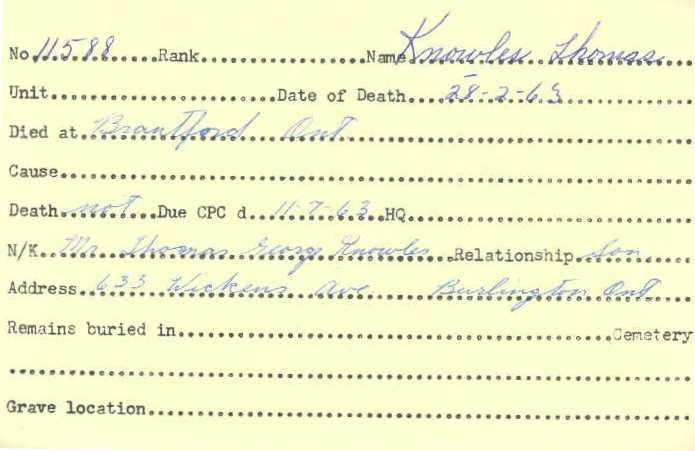 No 11588 Rank Name Knowles Thomas
Unit Date of Death 28-2-63
Died at Brantford Ont
Cause
Death not Due CPC d. 11-7-63 HQ
N/K Mr Thomas Georg Knowles Relationship Son
Address 633 Wickens Ave Burlington Ont
Remains buried in Cemetery
Grave location